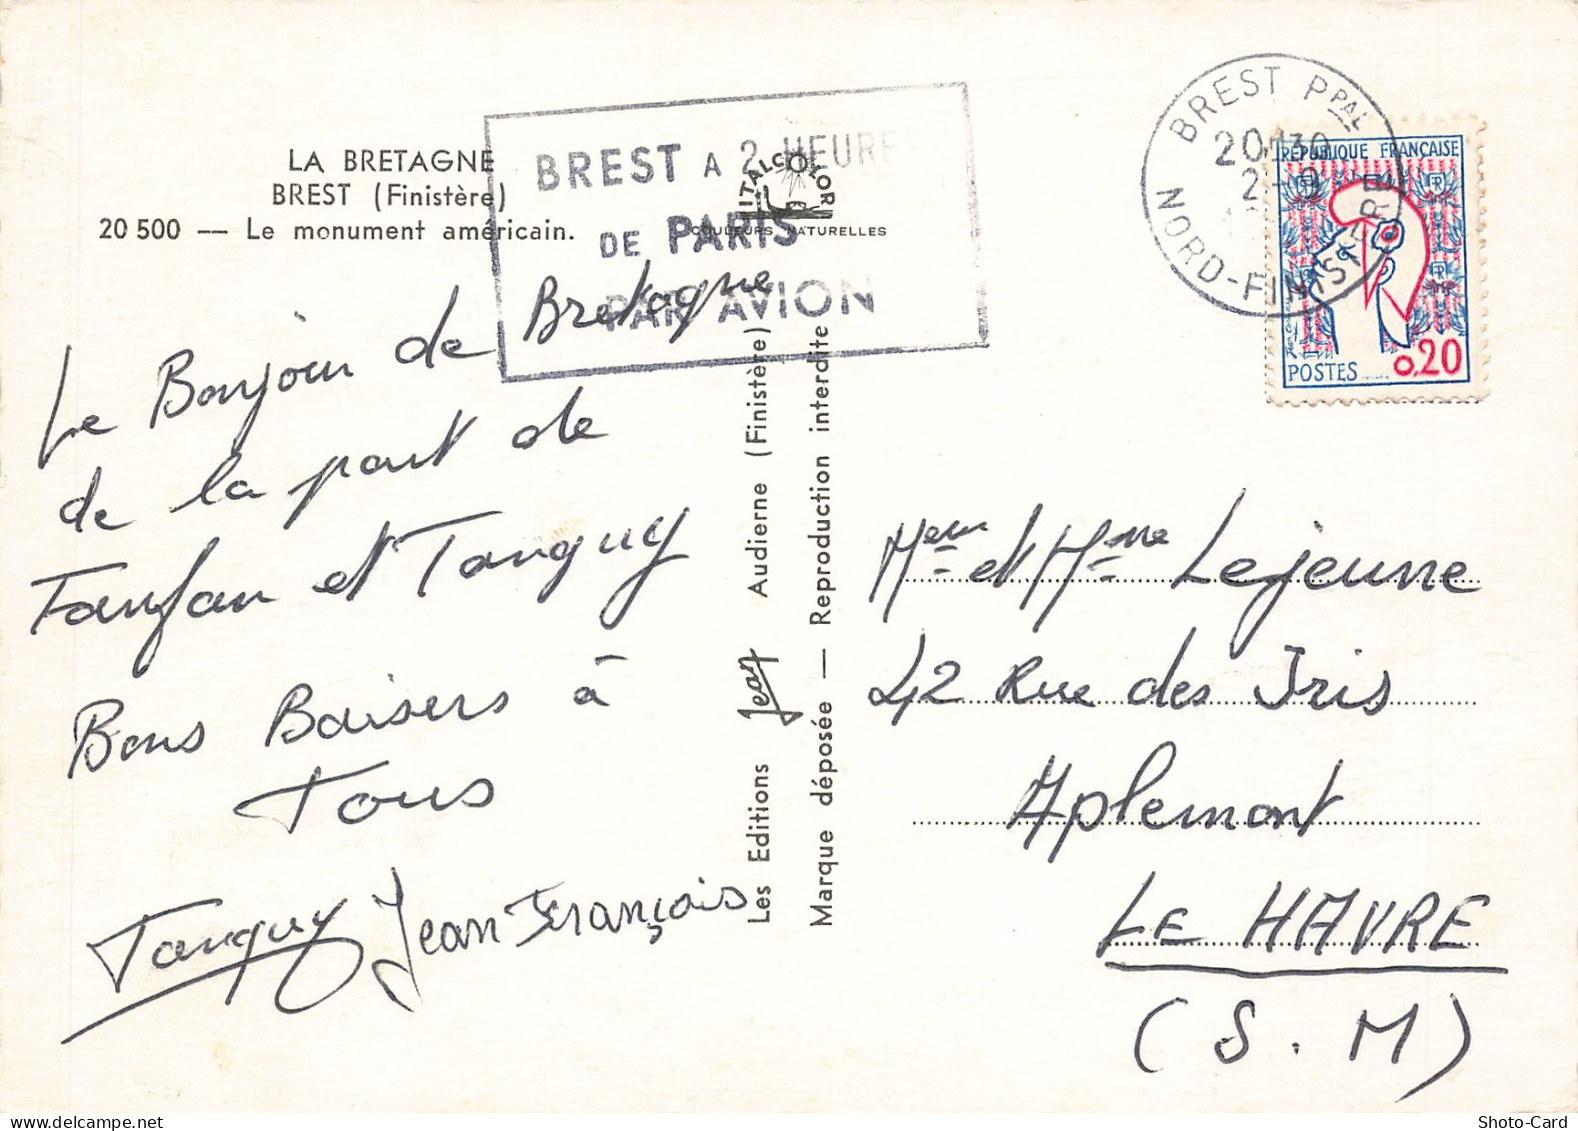 LA BRETAGNE
BREST (Finistère)
20 500 — Le monument américain.
BREST A 2 HEURES
DE PARIS
PAR AVION
ITALCOLOR
COULEURS NATURELLES
BREST PPAL
20H30
2-9
NORD-FINISTERE
RÉPUBLIQUE FRANÇAISE
RF
POSTES
0,20
Le Bonjour de Bretagne
de la part de
Fanfan et Tanguy
Bons Baisers à
Tous
Tanguy Jean François
Les Editions Jean Audierne (Finistère)
Marque déposée — Reproduction interdite
Meur et Mme Lejeune
42 Rue des Iris
Aplemont
LE HAVRE
(S.M)
Shoto-Card